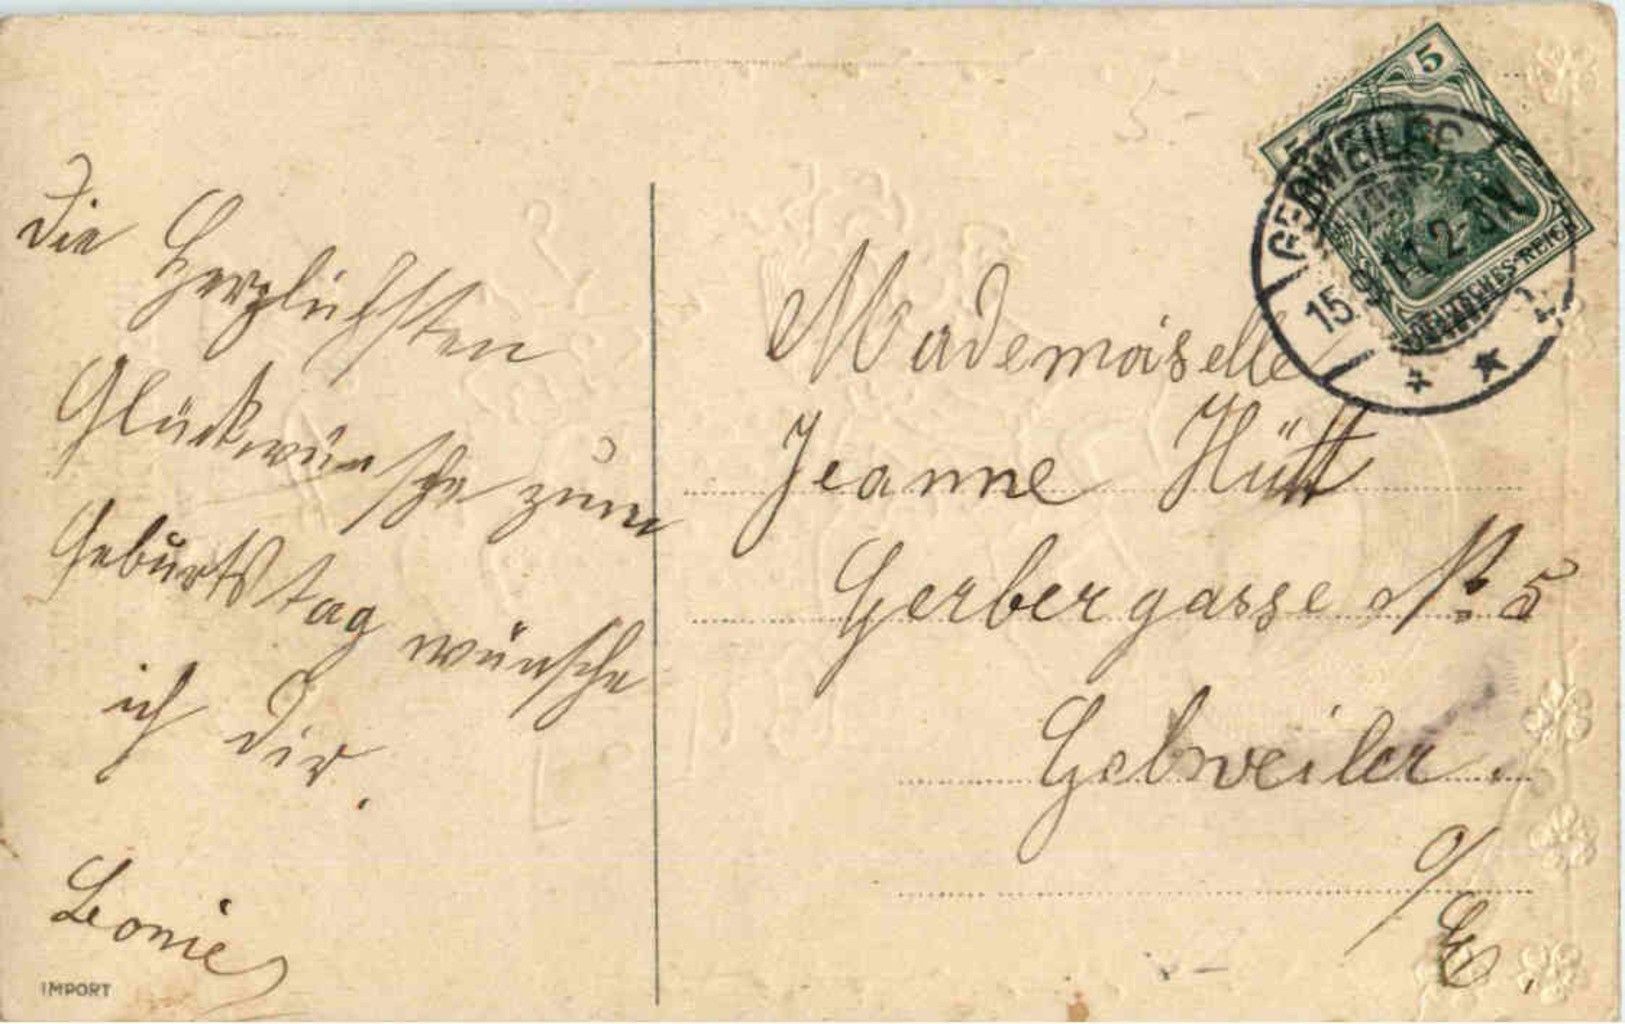 Die Herzlichsten
Glückwünsche zum
Geburtstag wünsche
ich dir.
Leonie
IMPORT
5
5
DEUTSCHES REICH
GEBWEILER
15.9.11.2-3N
Mademoiselle
Jeanne Hütt
Gerbergasse № 5
Gebweiler.
o/E.